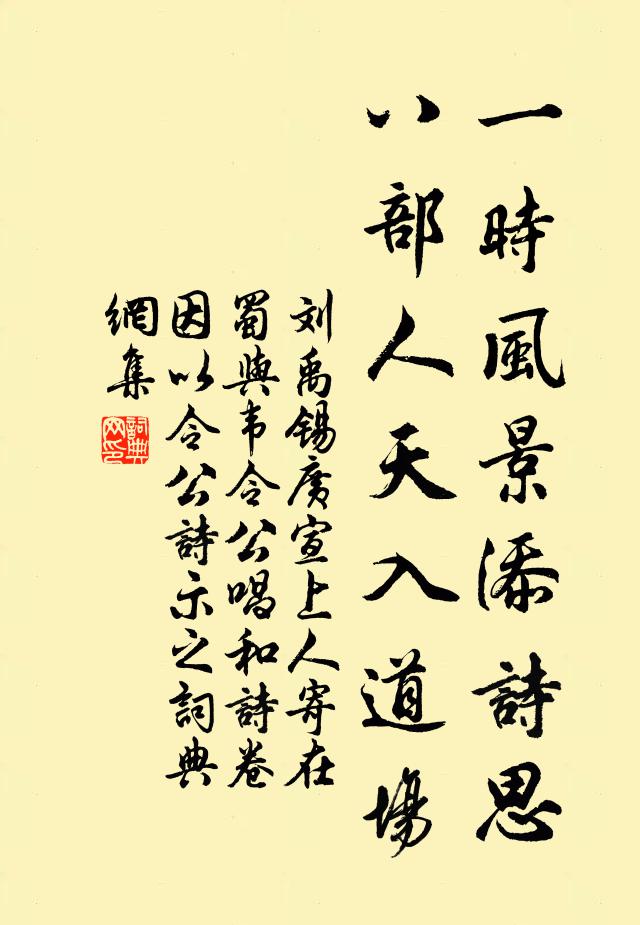 一時風景添詩思
八部人天入道場
刘禹锡廣宣上人寄在
蜀與韦令公唱和詩卷
因以令公詩示之詞典
網集
詞典
网印